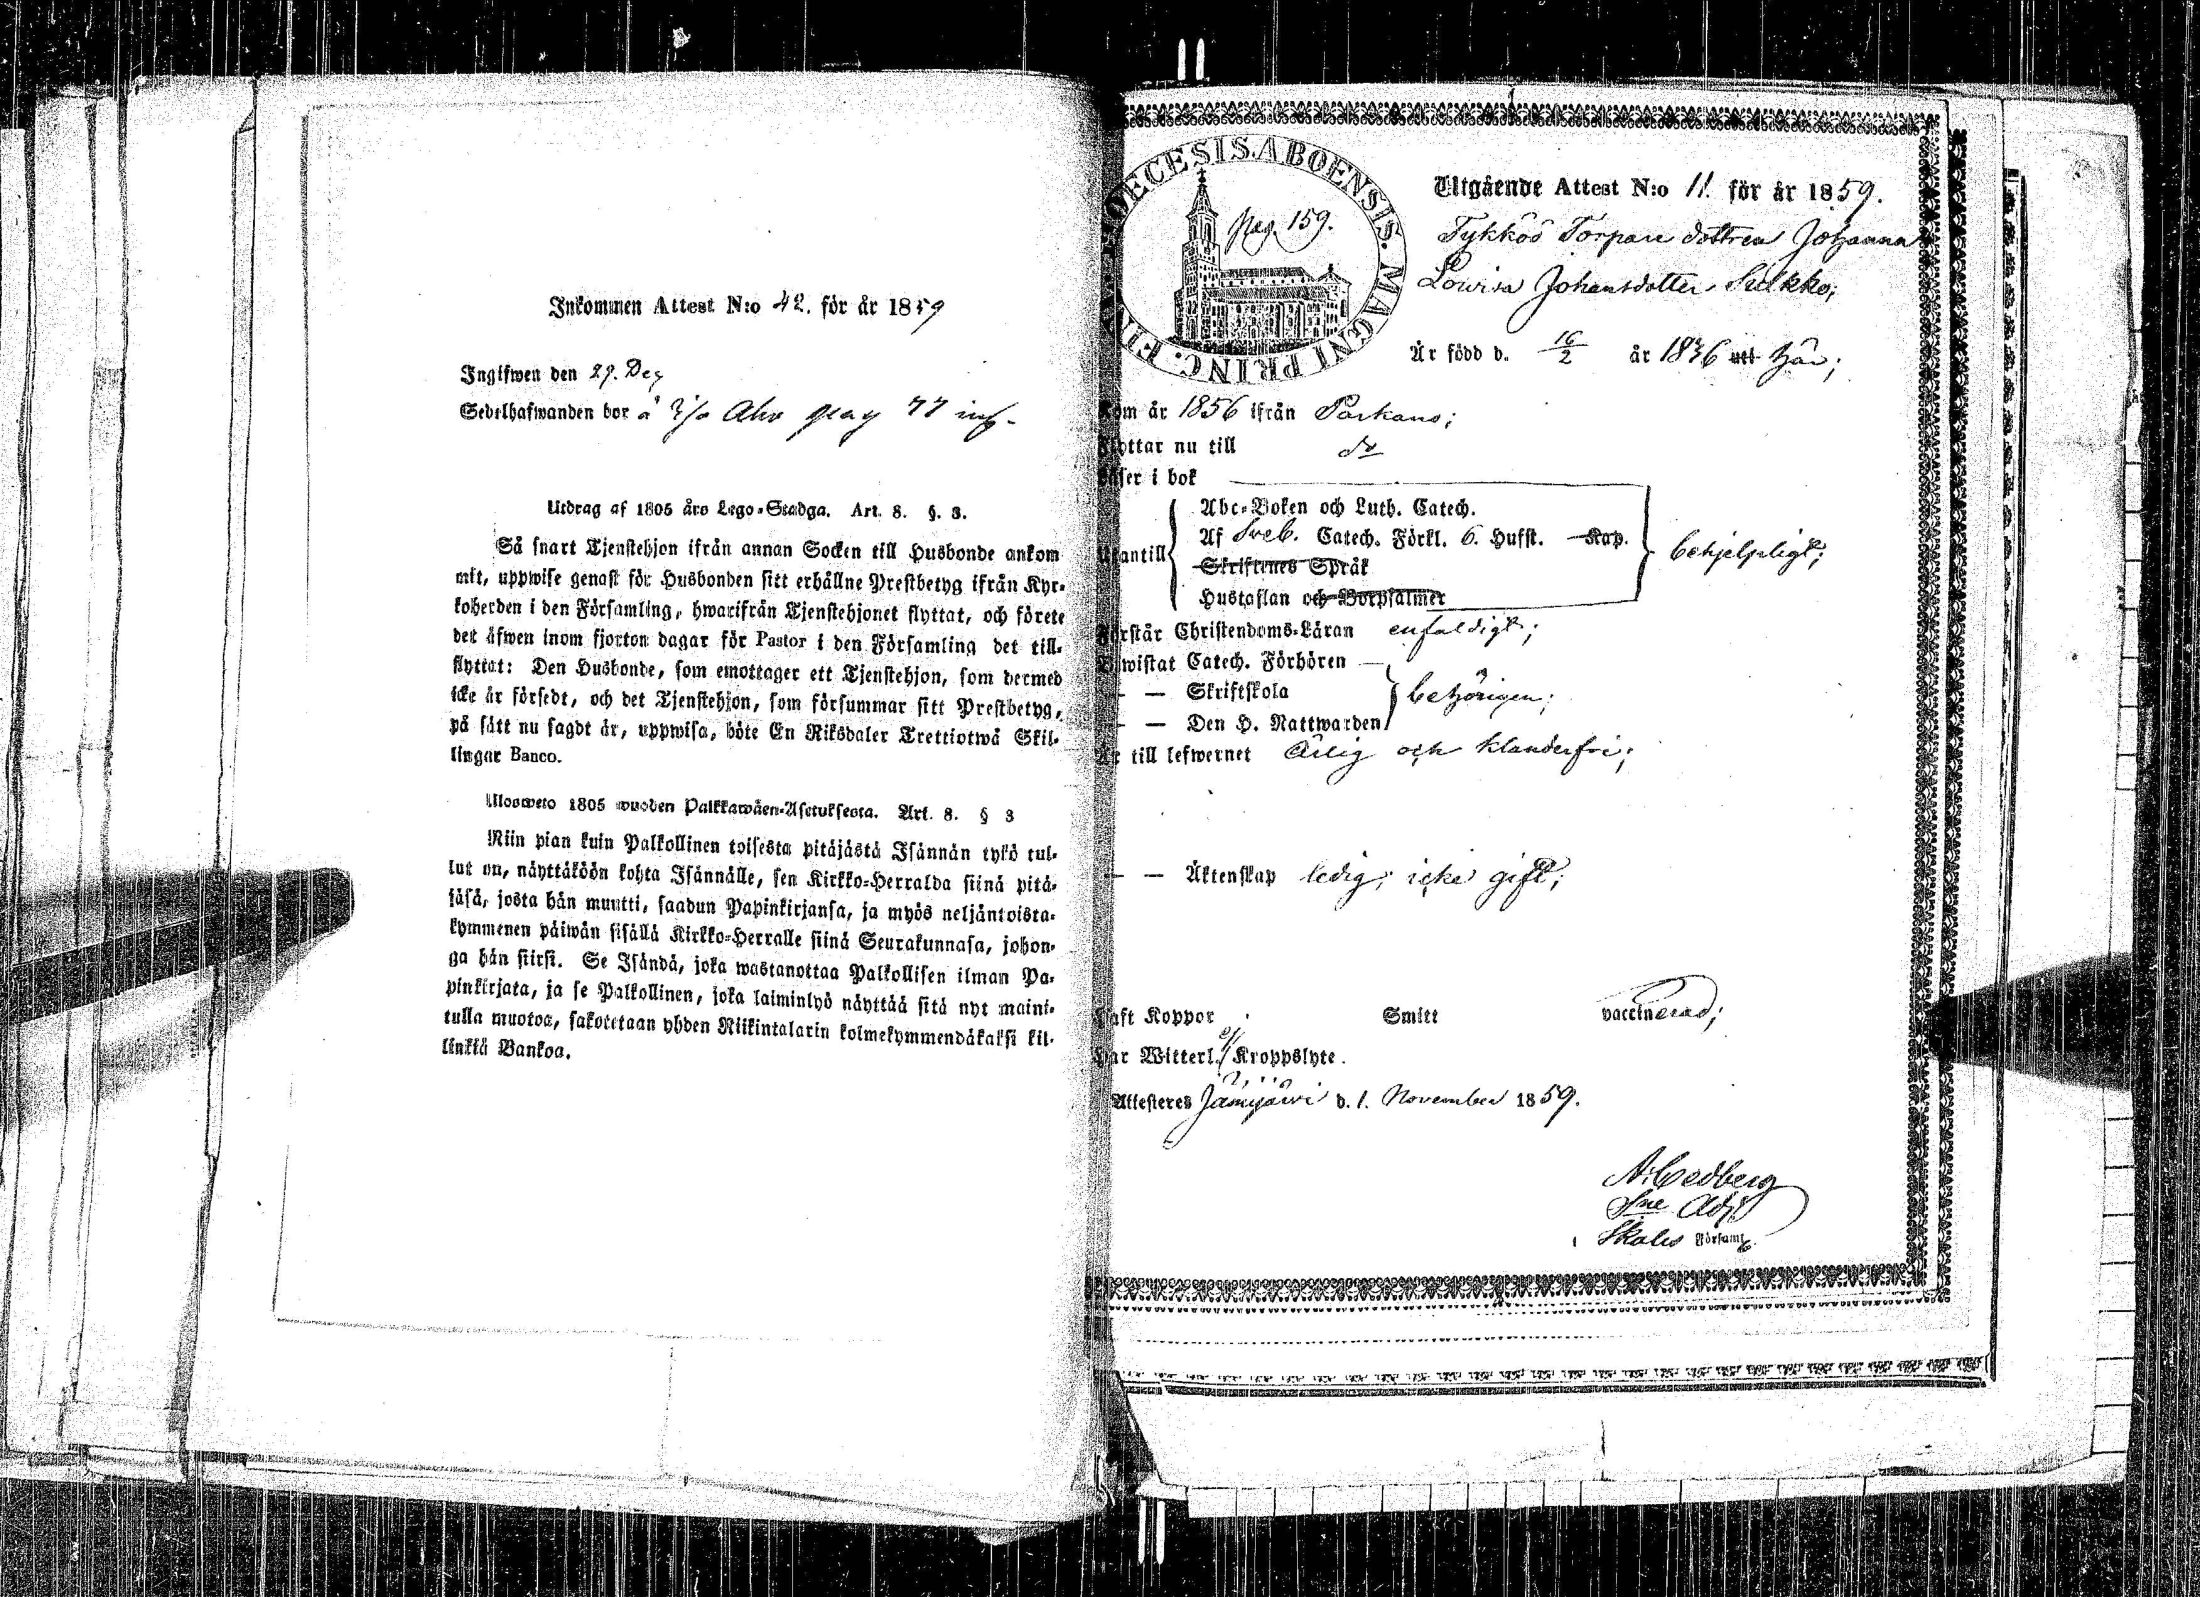 Inkommen Attest N:o 42. för år 1859
Ingifwen den 29. Dec
Sedelhafwanden bor å Aho pag 77
Utdrag af 1805 års Lego-Stadga. Art. 8. §. 3.
Så snart Tjenstehjon ifrån annan Socken till Husbonde ankom
mit, uppwise genast för Husbonden sitt erhållne Prestbetyg ifrån Kyr-
koherden i den Församling, hwarifrån Tjenstehjonet flyttat, och förete
det äfwen inom fjorton dagar för Pastor i den Församling det till-
flyttat: Den Husbonde, som emottager ett Tjenstehjon, som dermed
icke är försedt, och det Tjenstehjon, som försummar sitt Prestbetyg,
på sätt nu sagdt är, uppwisa, böte En Riksdaler Trettiotwå Skil-
lingar Banco.
Ulosweto 1805 wuoden Palkkawäen-Asetuksesta. Art. 8. § 3
Niin pian kuin Palkollinen toisesta pitäjästä Isännän tykö tul-
lut on, näyttäköön kohta Isännälle, sen Kirkko-Herralda siinä pitä-
jäsä, josta hän muutti, saadun Papinkirjansa, ja myös neljäntoista-
kymmenen päiwän sisällä Kirkko-Herralle siinä Seurakunnasa, johon-
ga hän siirsi. Se Isändä, joka wastanottaa Palkollisen ilman Pa-
pinkirjata, ja se Palkollinen, joka laiminlyö näyttää sitä nyt maini-
tulla muotoa, sakotetaan yhden Riikintalarin kolmekymmendäkaksi kil-
linkiä Bankoa.
DIOECESIS. ABOENSIS. MAGNI PRINC. FINL.
pag. 159.
Utgående Attest N:o 11. för år 1859.
Tykköö Torpare dottren Johanna
Lowisa Johansdotter Sulkko;
Är född d. 16/2 år 1836 uti här;
Kom år 1856 ifrån Parkano;
Flyttar nu till do
Läser i bok
Abc-Boken och Luth. Catech.
Utantill Af Sveb. Catech. Förkl. 6. Hufst. Kap. behjelpligt;
Skriftenes Språk
Hustaflan och Botpsalmer
Förstår Christendoms-Läran enfaldigt;
Bewistat Catech. Förhören —
— — Skriftskola behörigen;
— — Den H. Nattwarden
Är till lefwernet ärlig och klanderfri;
— — Äktenskap ledig; icke gift;
Haft Koppor Smitt vaccinerad;
Har Witterl. ej Kroppslyte.
Attesteres Jämijärvi d. 1. November 1859.
N. Cedberg
Sne Adj
i Ikalis Församl.